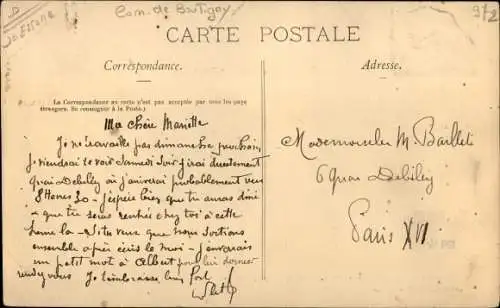 Con. de Bretigny
CARTE POSTALE
Correspondance.
Adresse.
La Correspondance au recto n'est pas acceptée par tous les pays
étrangers. (Se renseigner à la Poste.)
Ma chère Mariette
Je ne travaille pas dimanche prochain,
je viendrai te voir Samedi soir j'irai directement
Quai Debilley où j'arriverai probablement vers
8 heures 30 - j'espère bien que tu auras diné
& que tu seras rentrée chez toi à cette
heure là - Si tu veux que nous sortions
ensemble après écris le moi - j'enverrais
un petit mot à Albert pour lui donner
rendez vous Je t'embrasse bien fort
Mademoiselle M. Baillet
6 Quai Debilley
Paris XVI